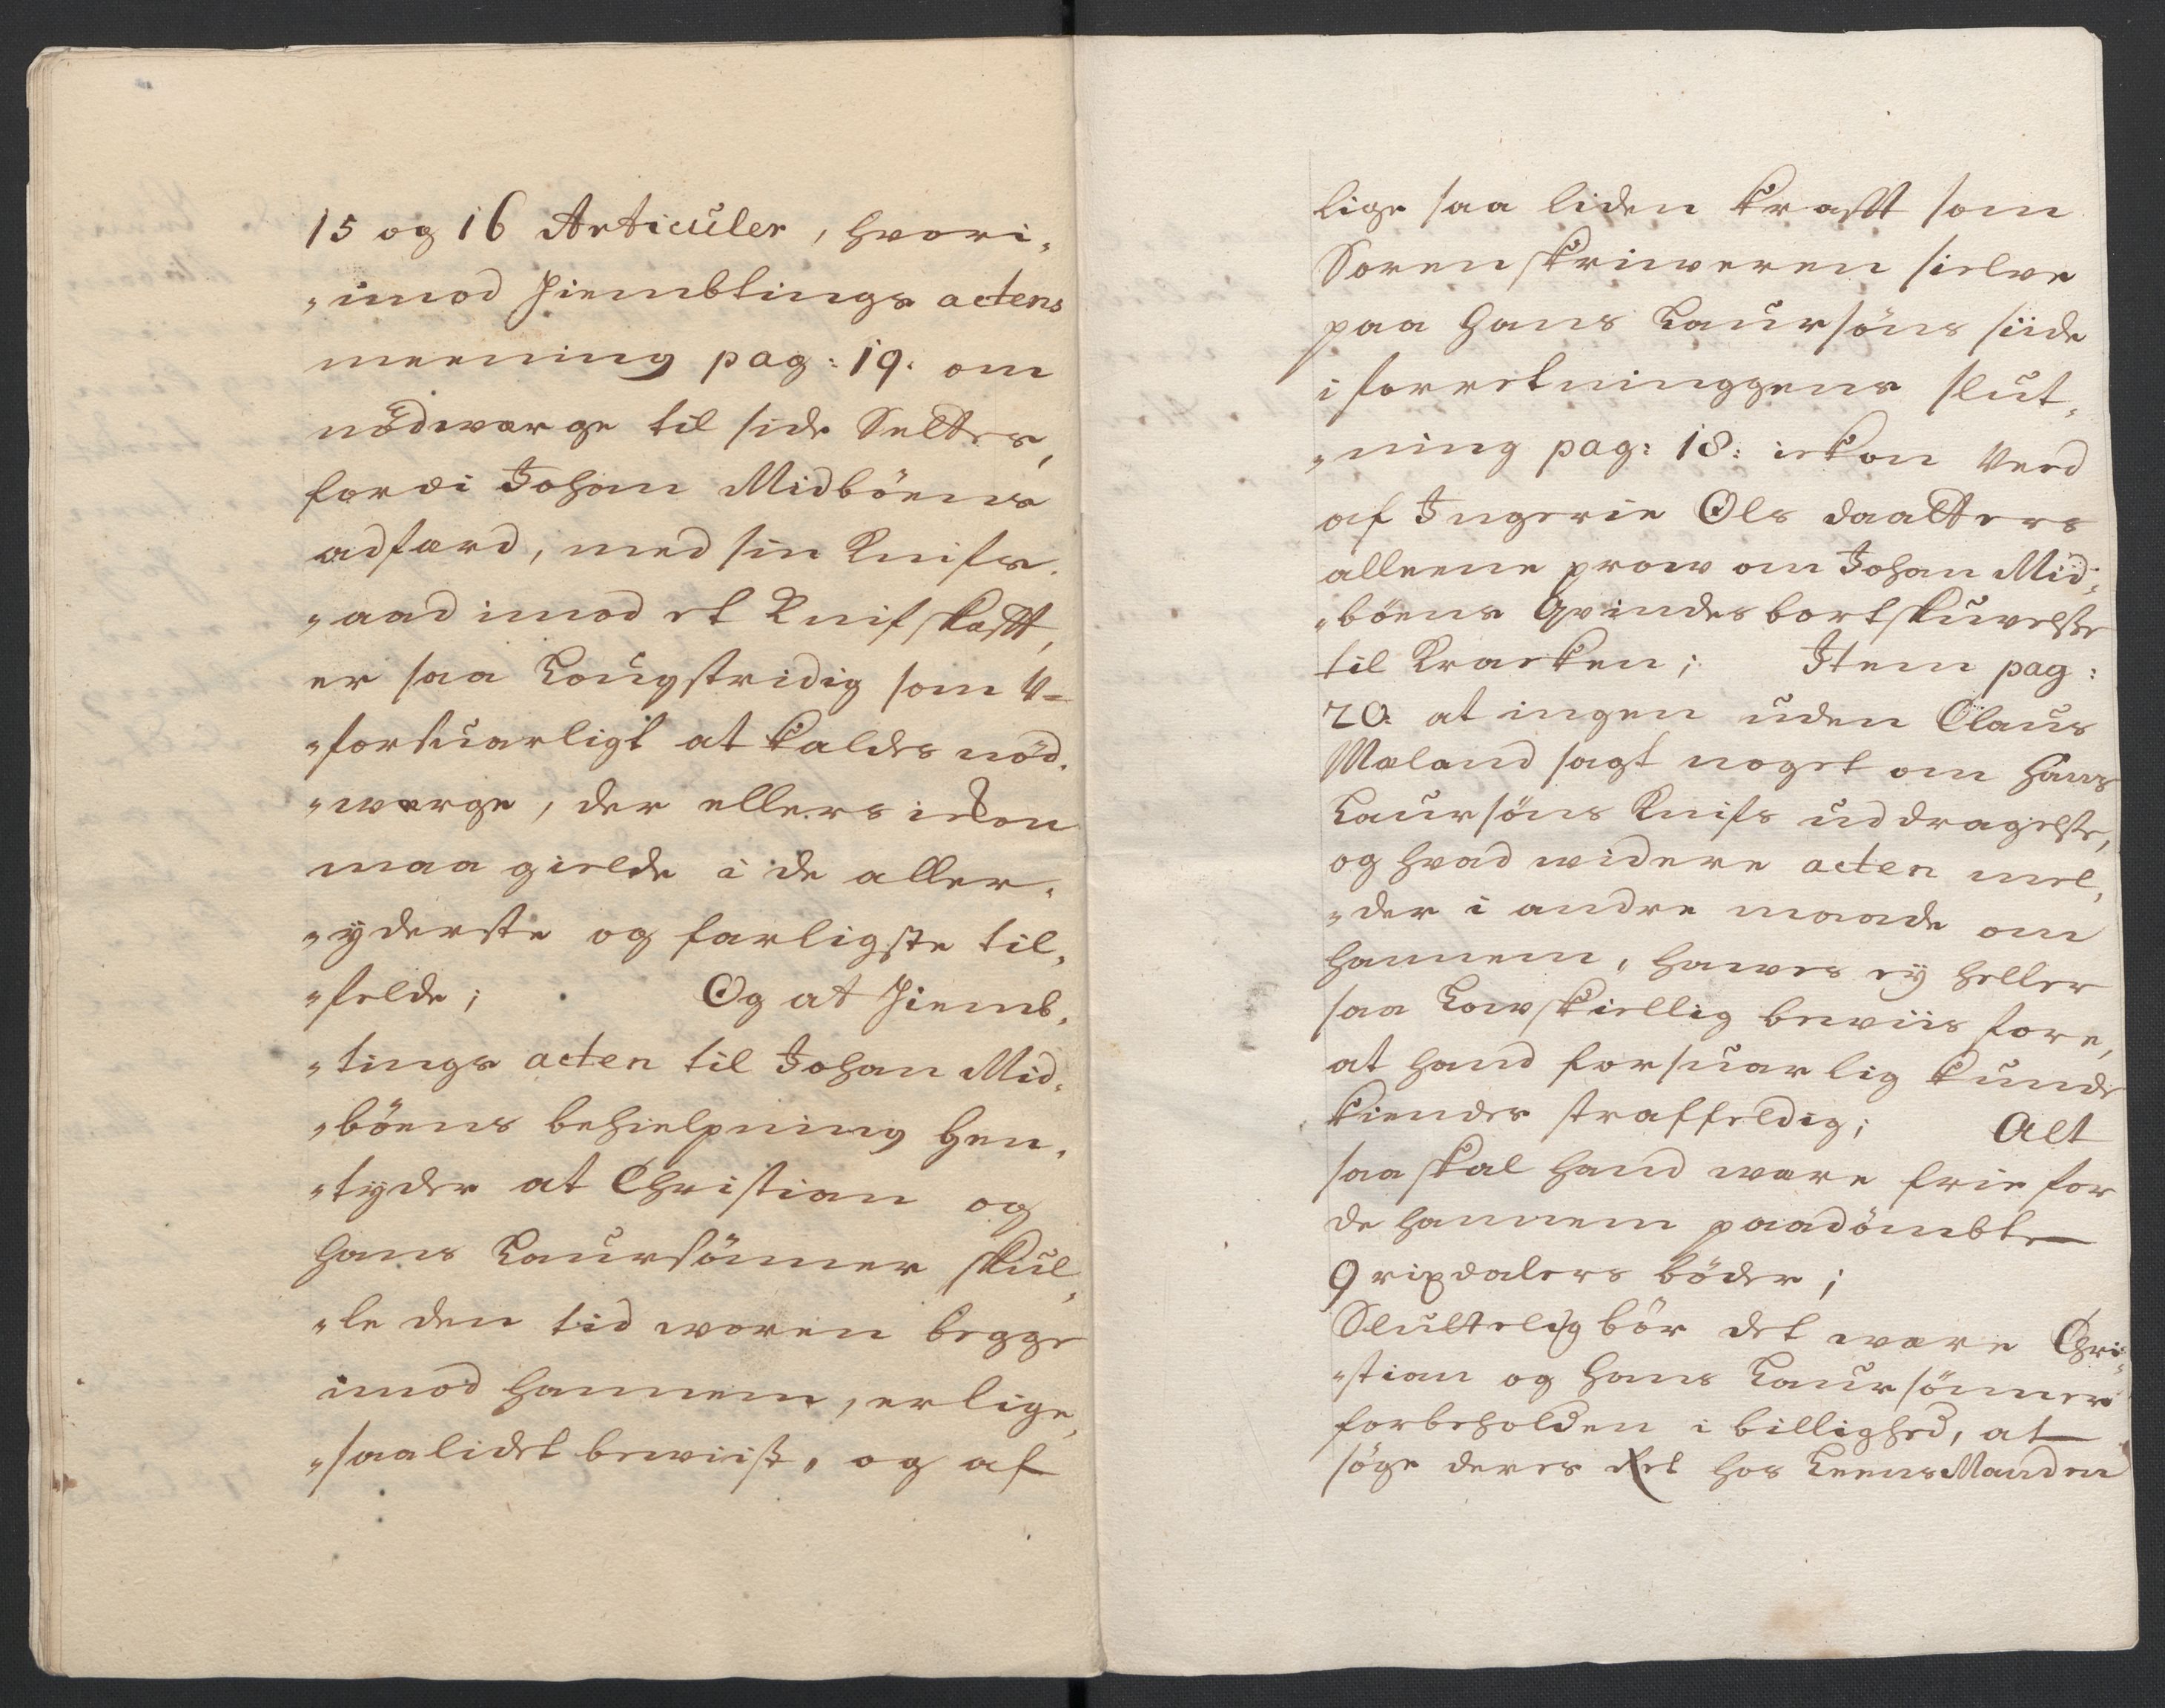 15 og 16 Articuler, hvori„
„imod Hiembtings actens
meening pag: 19. om
nödwærge til side Settes,
fordi Johan Midböens
adfærd, med sin Knifs
„aad imod et Knifskafft,
er saa Lougstridig som U=
„forsuarligt at kaldes nöd„
„werge, der ellers ickon
maa gielde i de aller„
„yderste og farligste til„
„felde; Og at Hiemb„
„tings acten til Johan Mid„
„böens behielpning hen„
„tyder at Christian og
Hans Laursönner skul„
„le den tid woren begge
imod hannem, er lige„
„saalidet bewiist, og af
lige saa liden krafft som
Sorenskriweren sielve
paa Hans Laursöns siide
i forretninggens slut„
„ning pag: 18: ickon Veed
af Ingerie Ols daatters
alleene prow om Johan Mid„
„böens Qvindes bortskuvelse
til Kracken; Item pag:
20. at ingen uden Claus
Mæland sagt noget om Hans
Laursöns Knifs uddragelse,
og hvad widere acten mel„
„der i andre maade om
hannem, hawes ey heller
saa Lowskiellig beviis fore,
at hand forsuarlig kunde
kiendes straffeldig; Alt
saa skal hand være frie for
de hannem paadömbte
9 rixdalers böder;
Sluttelig bör det wære Chri„
„stian og Hans Laursönner
forbeholden i billighed, at
söge deres Ret hos LeensManden